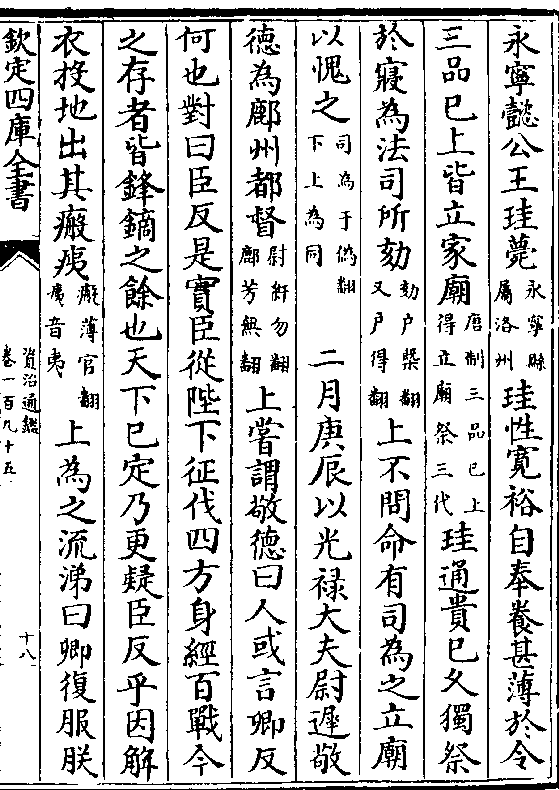 永寧懿公王珪薨永寧縣屬洛州珪性寛裕自奉養甚薄於令
三品已上皆立家廟唐制三品已上得立廟祭三代珪通貴已久獨祭
於寢為法司所劾劾戶槩翻又戶得翻上不問命有司為之立廟
以愧之司為于偽翻下上為同二月庚辰以光禄大夫尉遲敬
德為鄜州都督尉紆勿翻鄜芳無翻上嘗謂敬德曰人或言卿反
何也對曰臣反是實臣從陛下征伐四方身經百戰今
之存者皆鋒鏑之餘也天下已定乃更疑臣反乎因解
衣投地出其瘢痍瘢薄官翻痍音夷上為之流涕曰卿復服朕
欽定四庫全書
資治通鑑
卷一百九十五
十八